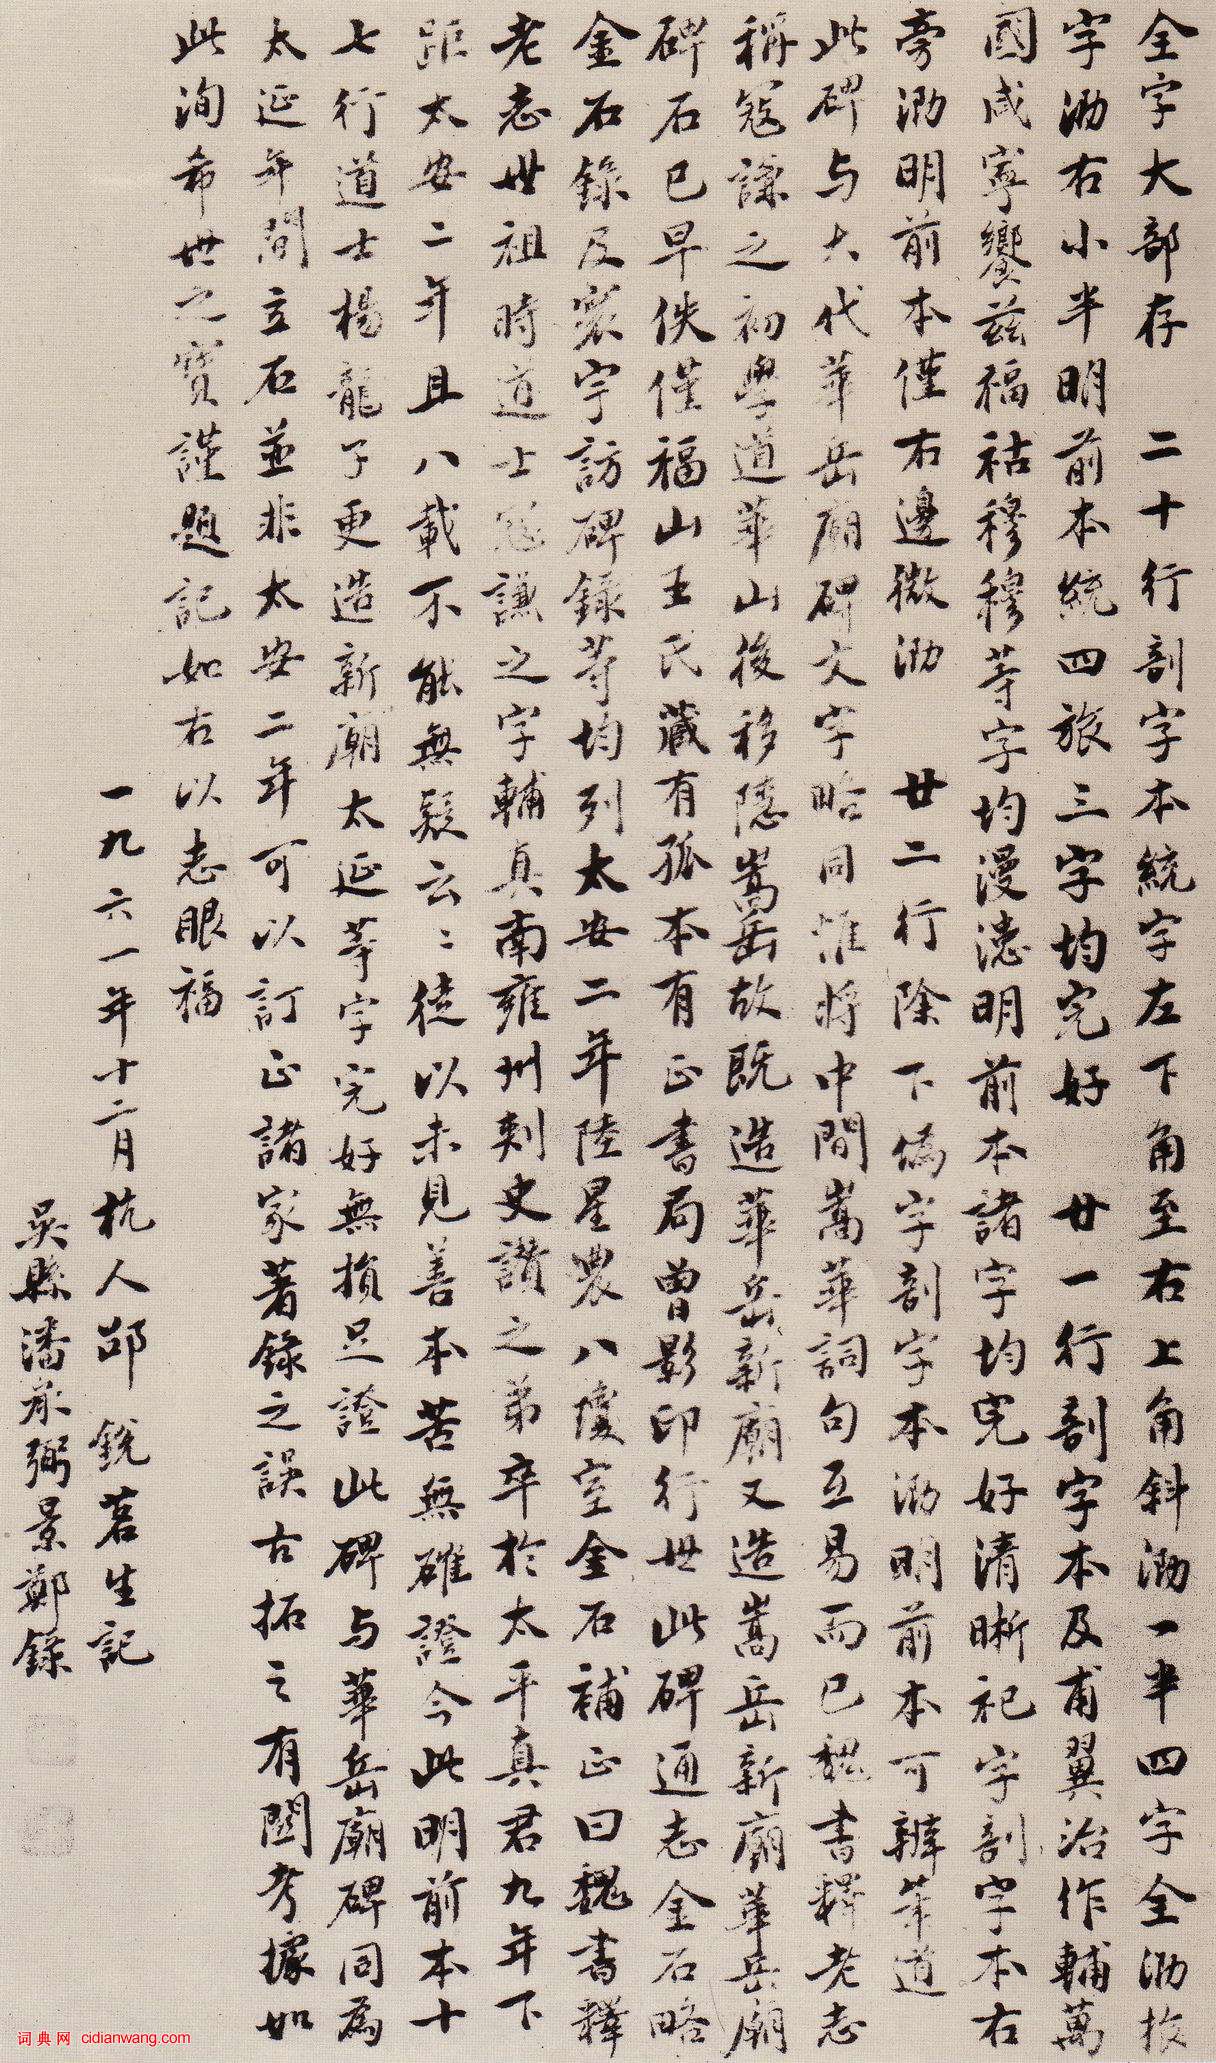 全字大部存 二十行剖字本統字左下角至右上角斜泐一半四字全泐牧
字泐右小半明前本統四旅三字均完好 廿一行剖字本及甫翼治作輔萬
國咸寧饗茲福祜穆穆等字均漫漶明前本諸字均完好清晰祀字剖字本右
旁泐明前本僅右邊微泐 廿二行除下偽字剖字本泐明前本可辨筆道
此碑与大代華岳廟碑文字略同惟將中間嵩華詞句互易而已魏書釋老志
稱寇謙之初學道華山後移隱嵩岳故既造華岳新廟又造嵩岳新廟華岳廟
碑石已早佚僅福山王氏藏有孤本有正書局曾影印行世此碑通志金石略
金石錄及寰宇訪碑錄等均列太安二年陸星農八瓊室金石補正曰魏書釋
老志世祖時道士寇謙之字輔真南雍州刺史讚之弟卒於太平真君九年下
距太安二年且八載不能無疑云云徒以未見善本苦無確證今此明前本十
七行道士楊龍子更造新廟太延等字完好無損足證此碑与華岳廟碑同為
太延年間立石並非太安二年可以訂正諸家著錄之誤古拓之有關考據如
此洵希世之寶謹題記如右以志眼福
一九六一年十二月杭人邵銳茗生記
吳縣潘承弼景鄭錄
词典网 cidianwang.com